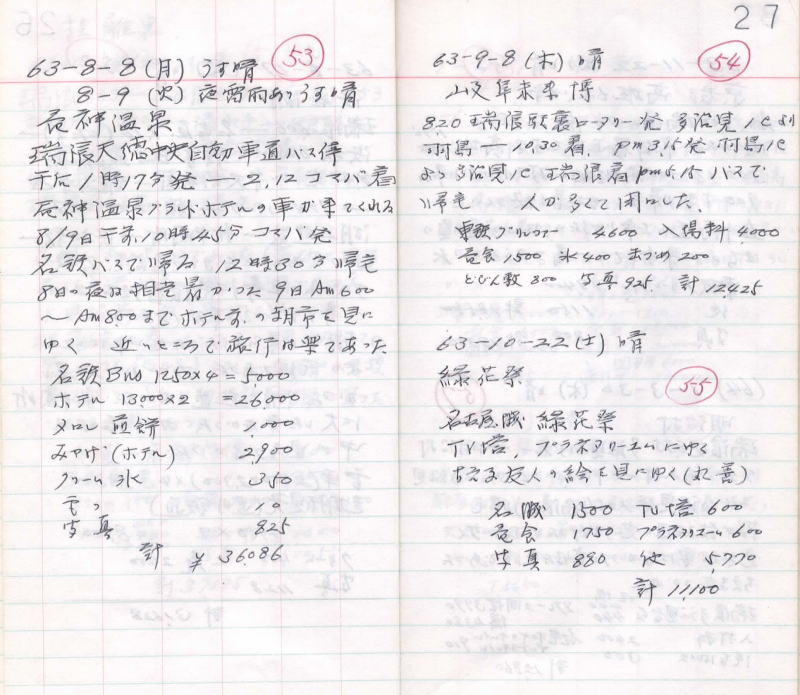 53
63-8-8(月) うす晴
8-9 (火) 夜雷雨あり うす晴
昼神温泉
瑞浪天徳中央自動車道バス停
午后1時17分発 → 2,12 コマバ着
昼神温泉グランドホテルの車が来てくれる
8/9日 午前10時45分 コマバ発
名鉄バスで帰る 12時30分帰宅
8日の夜は相当暑かった 9日Am6.00
～Am8.00までホテル前の朝市を見に
ゆく 近いところで旅行は楽であった
名鉄Bus 1250×4=5000
ホテル 13,000×2 =26,000
メロン煎餅 1,000
みやげ(ホテル) 2,900
クリーム氷 350
10
写真 825
計 ¥36,086
27
54
63-9-8(木) 晴
岐阜未来博
8.20 瑞浪駅裏ロータリー発 多治見ICより
羽島 → 10,30着, pm3,15発 羽島IC
より多治見IC 瑞浪着pm5,15 バスで
帰宅 人が多くて閉口した
東鉄 4600 入場料 4000
昼食1500 氷400 200
800 写真925. 計12,425
63-10-22(土) 晴
緑花祭
55
名古屋城 緑花祭
TV塔, プラネタリームにゆく
友人の絵を見にゆく(丸善)
名城 1500 TV塔 600
昼食 1750 プラネタリーム600
写真 880 他 5,770
計 11,100